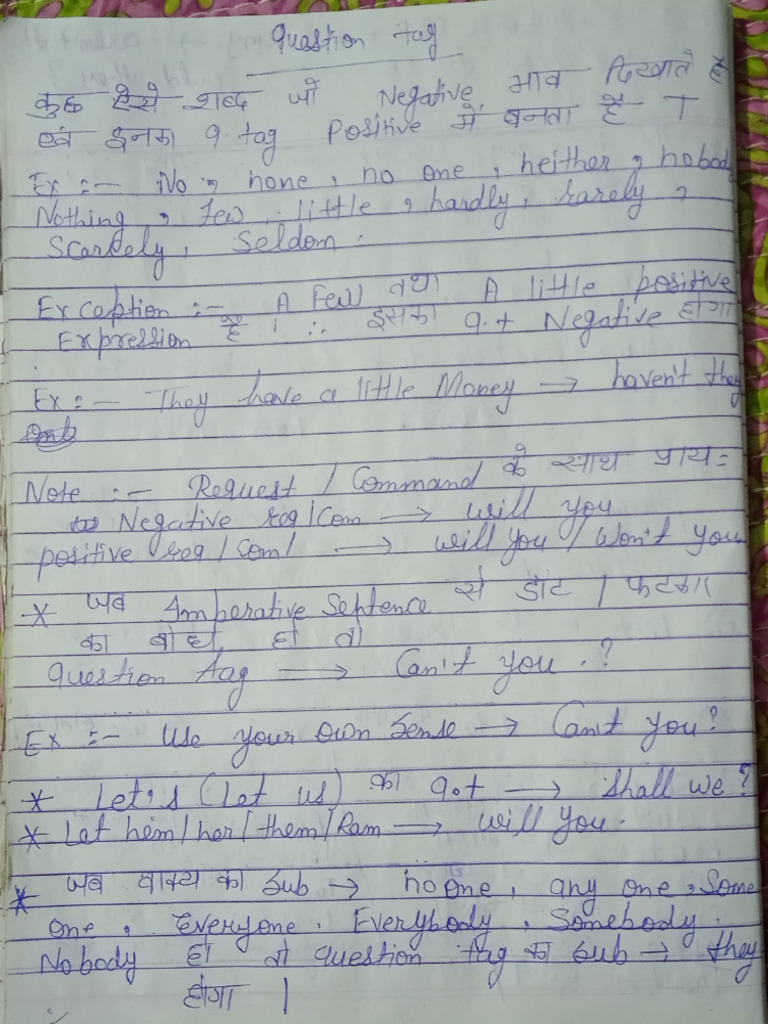 Question tag
कुछ ऐसे शब्द जो Negative भाव दिखाते है
एवं इनका q. tag Positive में बनता है ।
Ex :- No, none, no one, neither, nobody
Nothing, Few, little, hardly, rarely,
Scarcely, Seldom.
Exception :- A Few तथा A little positive
Expression है । ∴ इसका q.t Negative होगा
Ex :- They have a little Money → haven't they
Note :- Request / Command के साथ प्राय:
Negative req/Com → will you
positive req/Com/ → will you / Won't you
* जब Imperative Sentence से डांट / फटकार
का बोध हो तो
Question tag → Can't you.?
Ex :- Use your own sense → Can't you?
* Let's (Let us) का q.t → Shall we?
* Let him/her/them/Ram → will you.
* जब वाक्य का Sub → no one, any one, Some
one, Everyone, Everybody, Somebody,
Nobody हो तो question tag का sub → they
होगा |